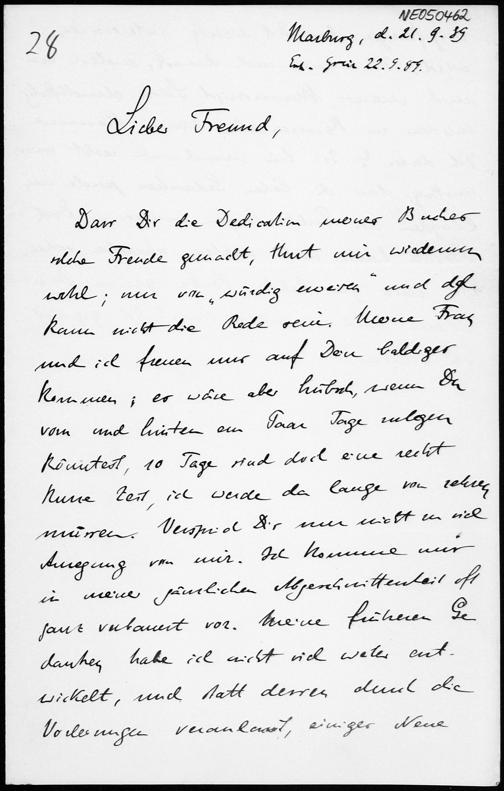 NE050462
28
Marburg, d. 21.9.89
Erh. Grein 22.9.89.
Lieber Freund,
Dass Dir die Dedication meines Buches
solche Freude gemacht, thut mir wiederum
wohl; nur von „würdig erweisen" und dgl.
kann nicht die Rede sein. Meine Frau
und ich freuen uns auf Dein baldiges
Kommen; es wäre aber hübsch, wenn Du
vorn und hinten ein Paar Tage zulegen
könntest, 10 Tage sind doch eine recht
kurze Zeit, ich werde da lange von zehren
müssen. Versprich Dir nur nicht zu viel
Anregung von mir. Ich komme mir
in meiner gänzlichen Abgeschnittenheit oft
ganz verbauert vor. Meine früheren Ge
danken habe ich nicht viel weiter ent-
wickelt, und statt dessen durch die
Vorlesungen veranlasst, einiges Neue